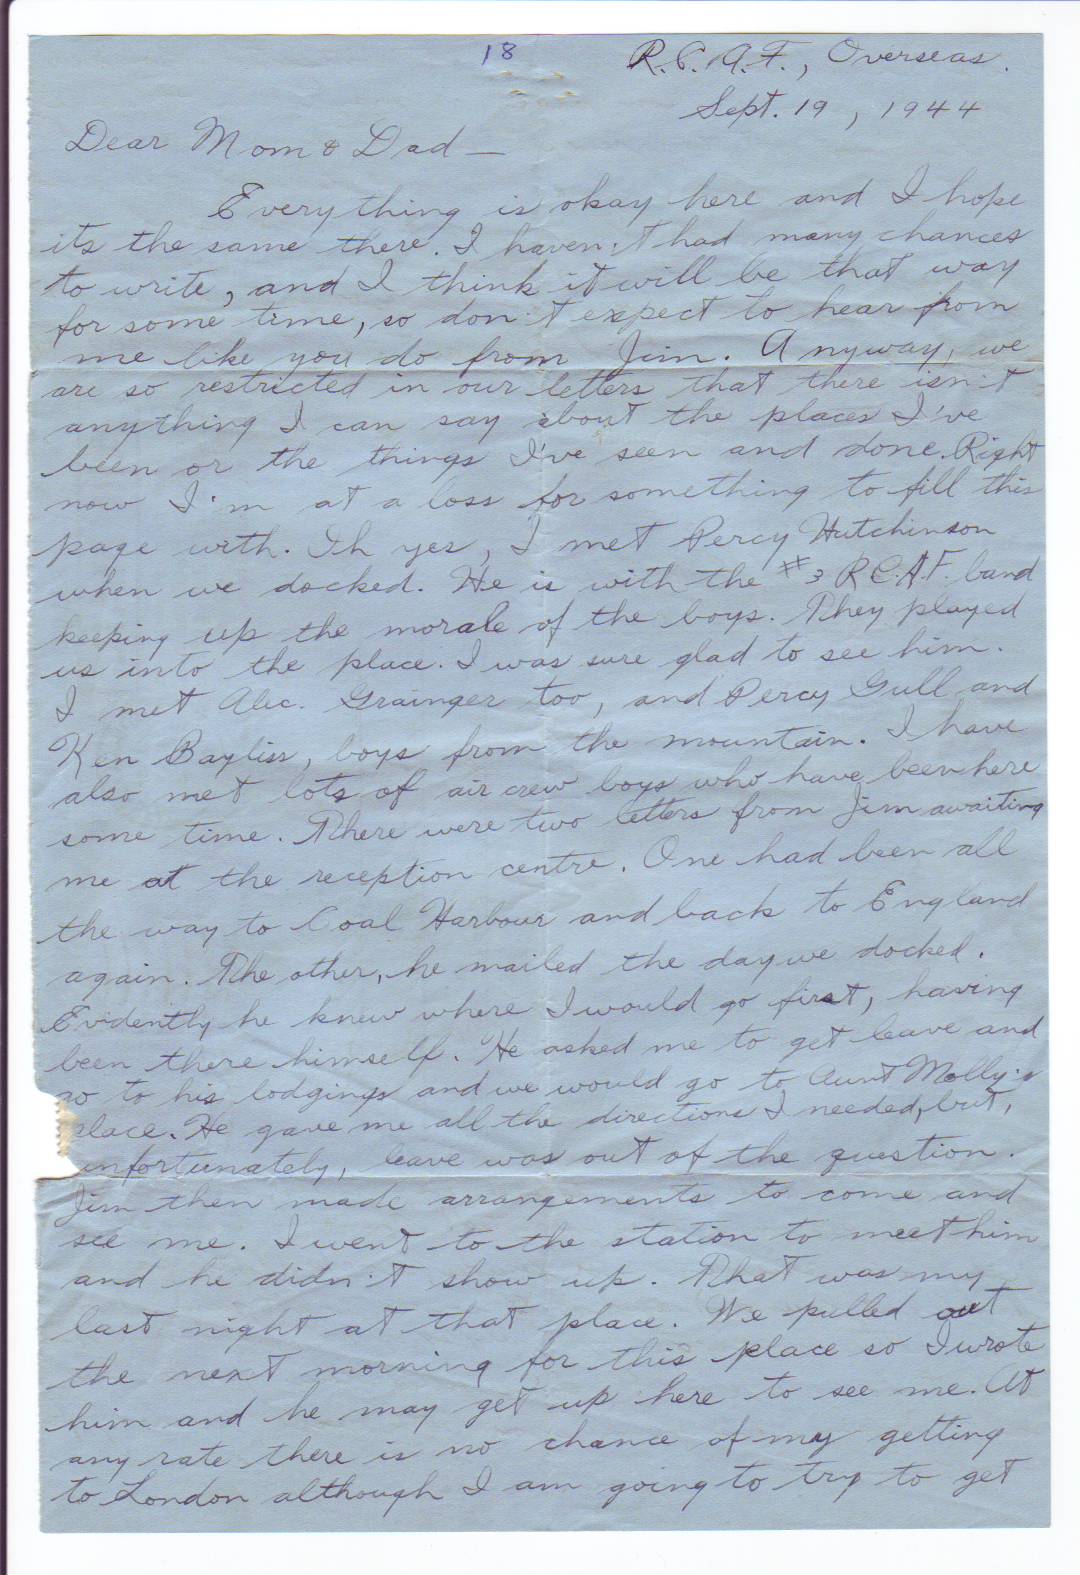 18
R.C.A.F., Overseas.
Sept. 19, 1944
Dear Mom & Dad —
Everything is okay here and I hope
its the same there. I haven't had many chances
to write, and I think it will be that way
for some time, so don't expect to hear from
me like you do from Jim. Anyway, we
are so restricted in our letters that there isn't
anything I can say about the places I've
been or the things I've seen and done. Right
now I'm at a loss for something to fill this
page with. Oh yes, I met Percy Hutchinson
when we docked. He is with the #3 R.C.A.F. band
keeping up the morale of the boys. They played
us into the place. I was sure glad to see him.
I met Alec. Grainger too, and Percy Gull and
Ken Bayliss, boys from the mountain. I have
also met lots of air crew boys who have been here
some time. There were two letters from Jim awaiting
me at the reception centre. One had been all
the way to Coal Harbour and back to England
again. The other, he mailed the day we docked.
Evidently he knew where I would go first, having
been there himself. He asked me to get leave and
go to his lodgings and we would go to Aunt Molly's
place. He gave me all the directions I needed, but,
unfortunately, leave was out of the question.
Jim then made arrangements to come and
see me. I went to the station to meet him
and he didn't show up. That was my
last night at that place. We pulled out
the next morning for this place so I wrote
him and he may get up here to see me. At
any rate there is no chance of my getting
to London although I am going to try to get